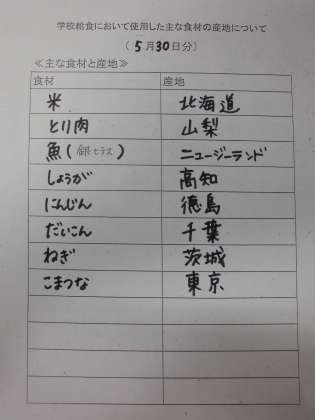 学校給食において使用した主な食材の産地について
(5月30日分)
≪主な食材と産地≫
食材 産地
米 北海道
とり肉 山梨
魚(銀ヒラス) ニュージーランド
しょうが 高知
にんじん 徳島
だいこん 千葉
ねぎ 茨城
こまつな 東京